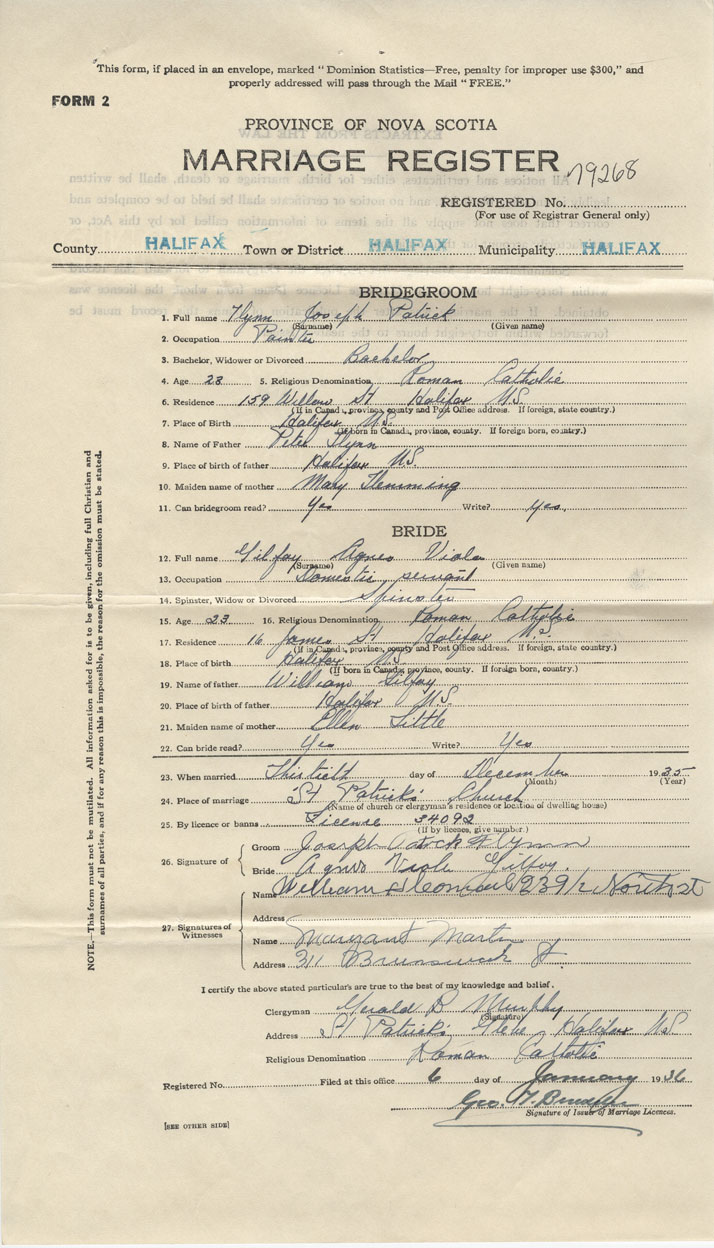 "This form, if placed in an envelope, marked "Dominion Statistics—Free, penalty for improper use $300," and
properly addressed will pass through the Mail "FREE."
FORM 2
PROVINCE OF NOVA SCOTIA
MARRIAGE REGISTER
79268
REGISTERED No.
(For use of Registrar General only)
County HALIFAX Town or District HALIFAX Municipality HALIFAX
BRIDEGROOM
1. Full name Flynn Joseph Patrick
(Surname) (Given name)
2. Occupation Painter
3. Bachelor, Widower or Divorced Bachelor
4. Age 28 5. Religious Denomination Roman Catholic
6. Residence 159 Willow St Halifax N.S.
(If in Canada, province, county and Post Office address. If foreign, state country.)
7. Place of Birth Halifax N.S.
(If born in Canada, province, county. If foreign born, country.)
8. Name of Father Peter Flynn
9. Place of birth of father Halifax N.S.
10. Maiden name of mother Mary Flemming
11. Can bridegroom read? Yes Write? Yes.
BRIDE
12. Full name Gilfoy Agnes Viola
(Surname) (Given name)
13. Occupation Domestic servant
14. Spinster, Widow or Divorced Spinster
15. Age 23 16. Religious Denomination Roman Catholic
17. Residence 16 James St Halifax N.S.
(If in Canada, province, county and Post Office address. If foreign, state country.)
18. Place of birth Halifax N.S.
(If born in Canada, province, county. If foreign born, country.)
19. Name of father William Gilfoy
20. Place of birth of father Halifax N.S.
21. Maiden name of mother Ellen Little
22. Can bride read? Yes Write? Yes
23. When married Thirtieth day of December 1935
(Month) (Year)
24. Place of marriage St Patrick's Church
(Name of church or clergyman's residence or location of dwelling house)
25. By licence or banns License 34092
(If by licence, give number.)
26. Signature of Groom Joseph Patrick Flynn
Bride Agnes Viola Gilfoy.
27. Signatures of Witnesses
Name William 239 1/2 North st
Address
Name Margaret Martin
Address 311 Brunswick St.
I certify the above stated particular's are true to the best of my knowledge and belief.
Clergyman Gerald B Murphy
(Signature)
Address St Patrick's Glebe Halifax N.S
Religious Denomination Roman Catholic
Registered No. Filed at this office 6 day of January 1936
Geo.
Signature of Issuer of Marriage Licences.
[SEE OTHER SIDE]
NOTE.—This form must not be mutilated. All information asked for is to be given, including full Christian and
surnames of all parties, and if for any reason this is impossible, the reason for the omission must be stated.